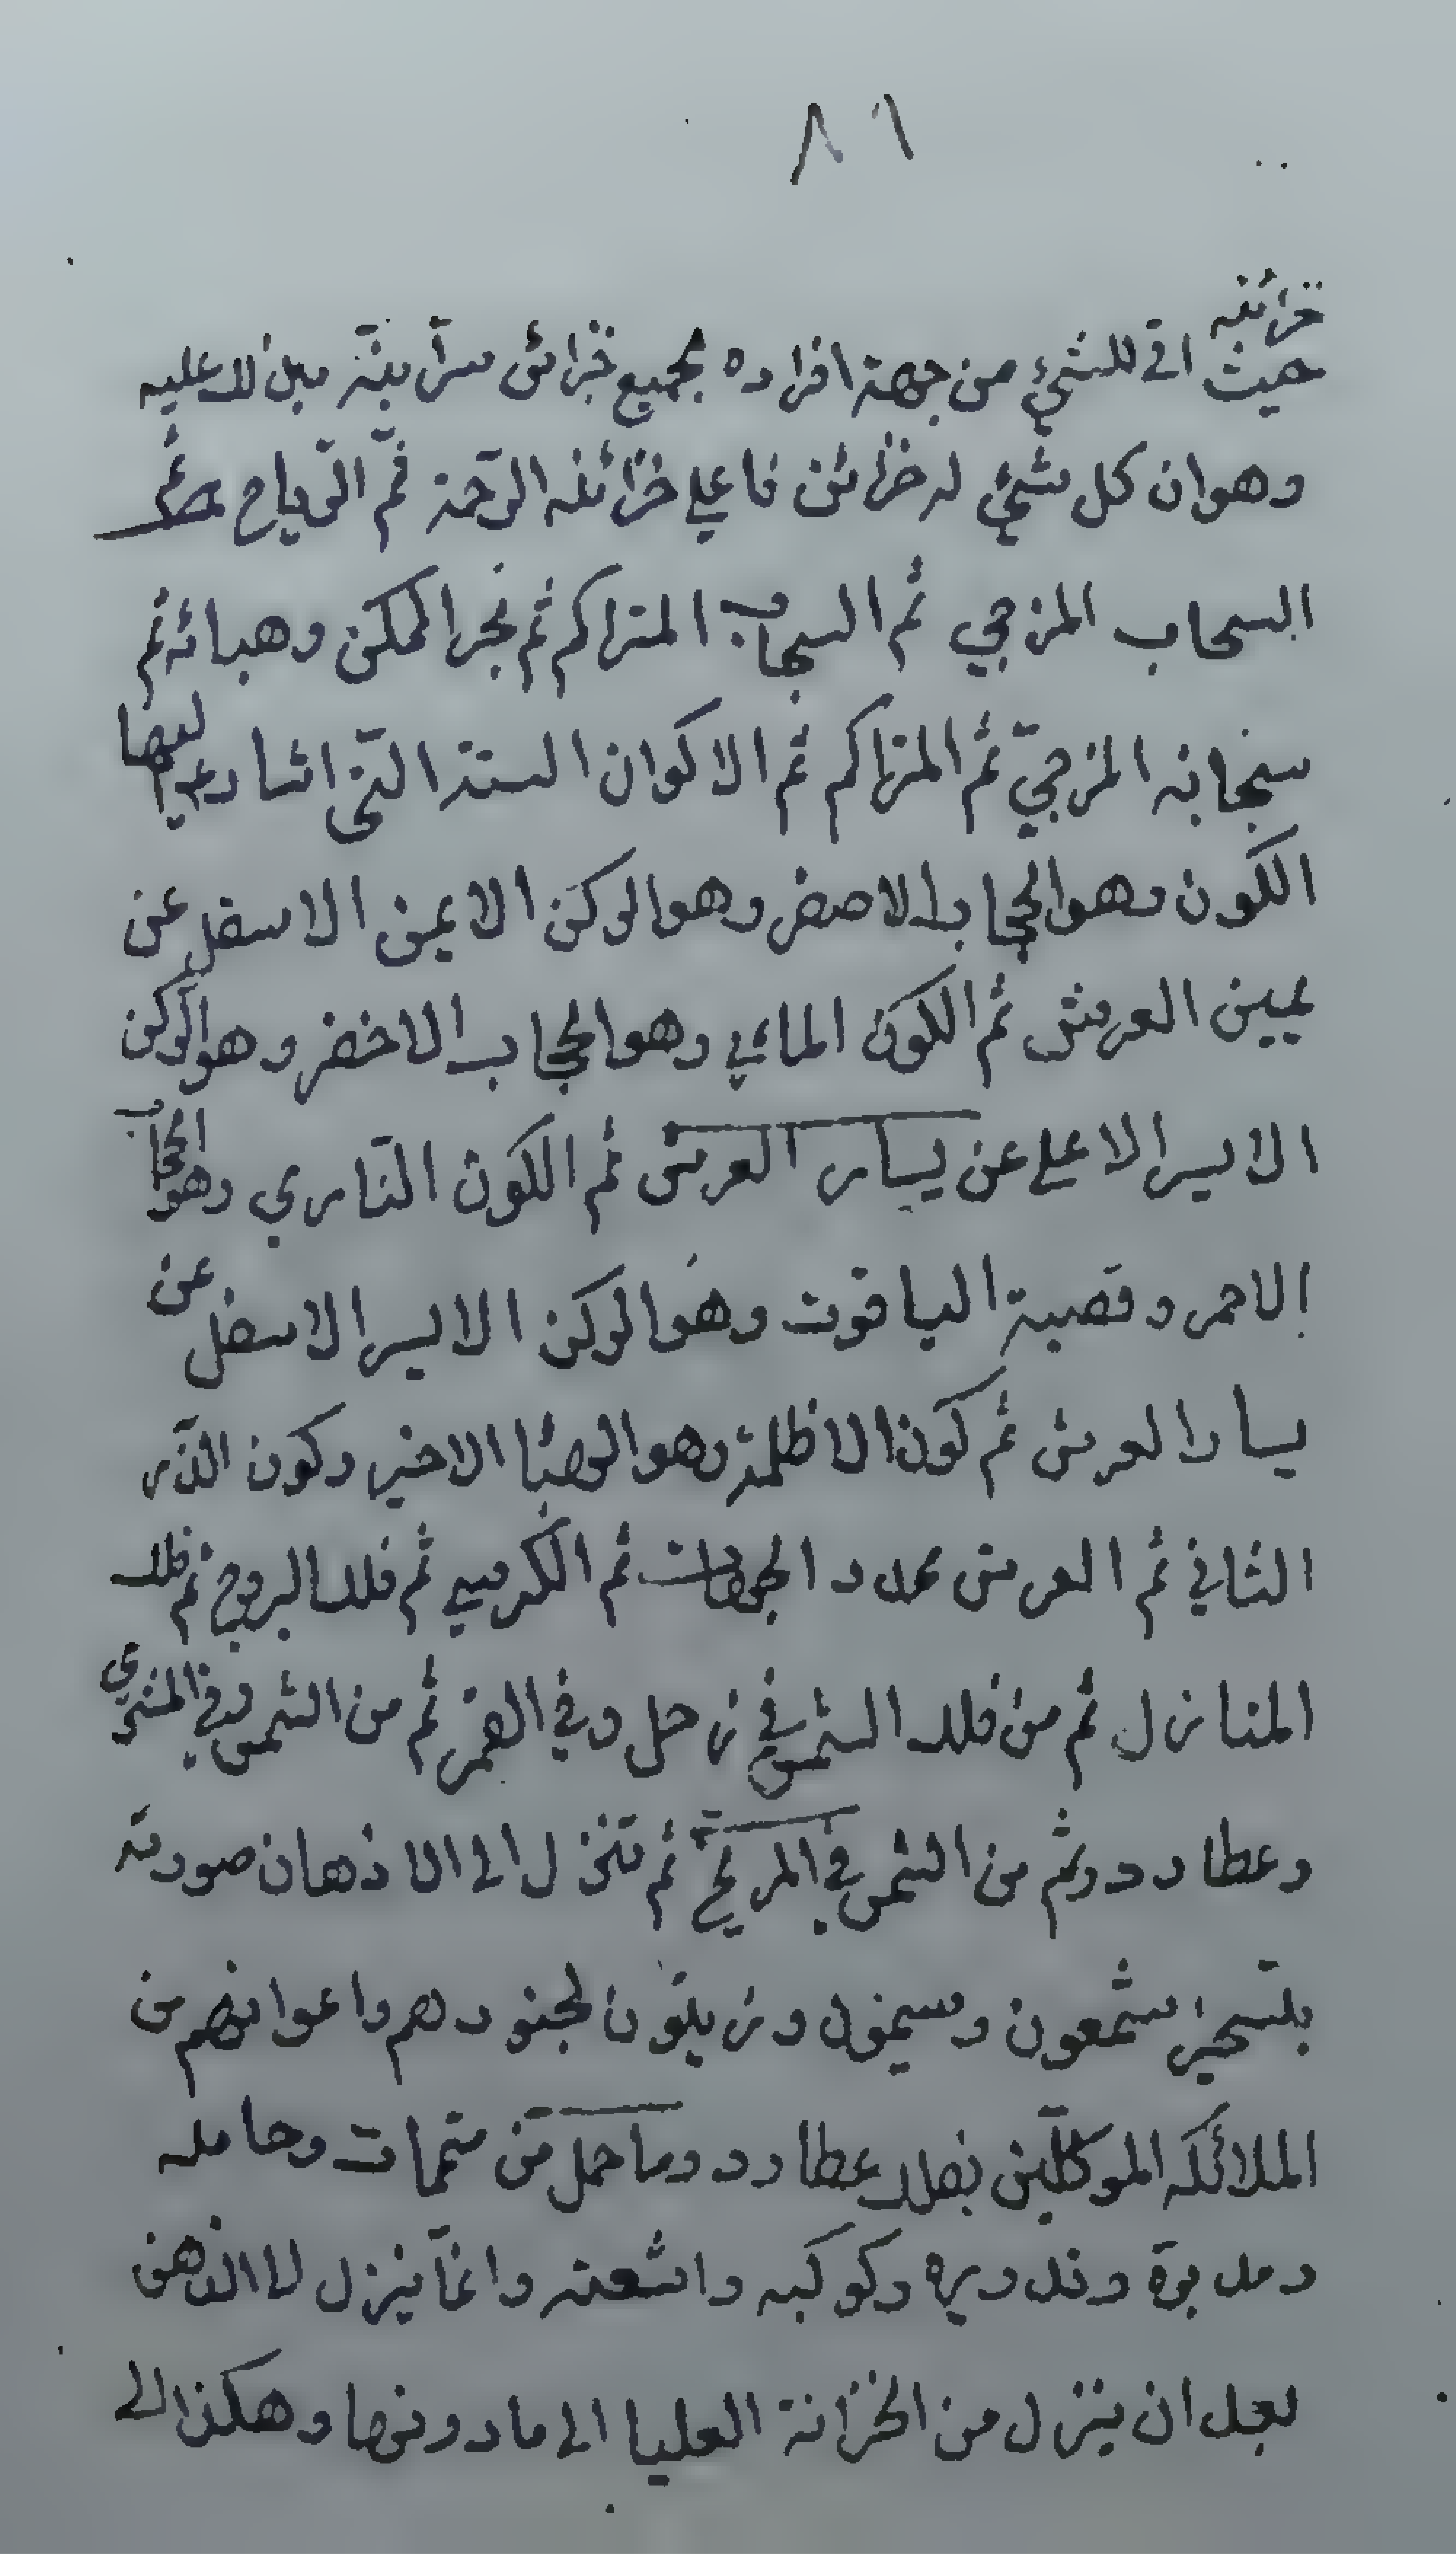 ٨١
خزائنه
حيث اتى للشئ من جهة افراده بجميع خزائن مراتبة يدل لك عليه
وهو ان كل شئ له خزائن فاعلى خزائنه الرّحمة ثمّ الرّياح ثم
السحاب المزجي ثم السحاب المتراكم ثم بحر امكن وهبائه ثم
سحابه المزجيّ ثم المتراكم ثم الاكوان الستة الّتى اشار اليها
الكون وهو الحجاب الاصفر وهو الركن الايمن الاسفل عن
يمين العرش ثم الكون المائي وهو الحجاب الاخضر وهو الركن
الايسر الاعلى عن يسار العرش ثم الكون النّاري وهو الحجاب
الاحمر وقصبة الياقوت وهو الركن الايسر الاسفل عن
يسار العرش ثم كون الاظلة وهو الهبا الاخير وكون الذّر
الثاني ثم العرش محدد الجهات ثم الكرسي ثم فلك البروج ثم فلك
المنازل ثم من فلك الشمس في زحل وفي القمر ثم من الشمس وفي المشتري
وعطارد وثم من الشمس في المريخ ثم تنزل الى الاذهان صورته
بتسخير شمعون وسيمون وزيتون لجنودهم واعوانهم من
الملائكه الموكلّين بفلك عطارد وما حمل من متممات وحامله
ومدبرة وتدويره وكوكبه واشعته وانّما ينزل الا الذهن
بعد ان ينزل من الخزانة العليا الى ما دونها وهكذا الى